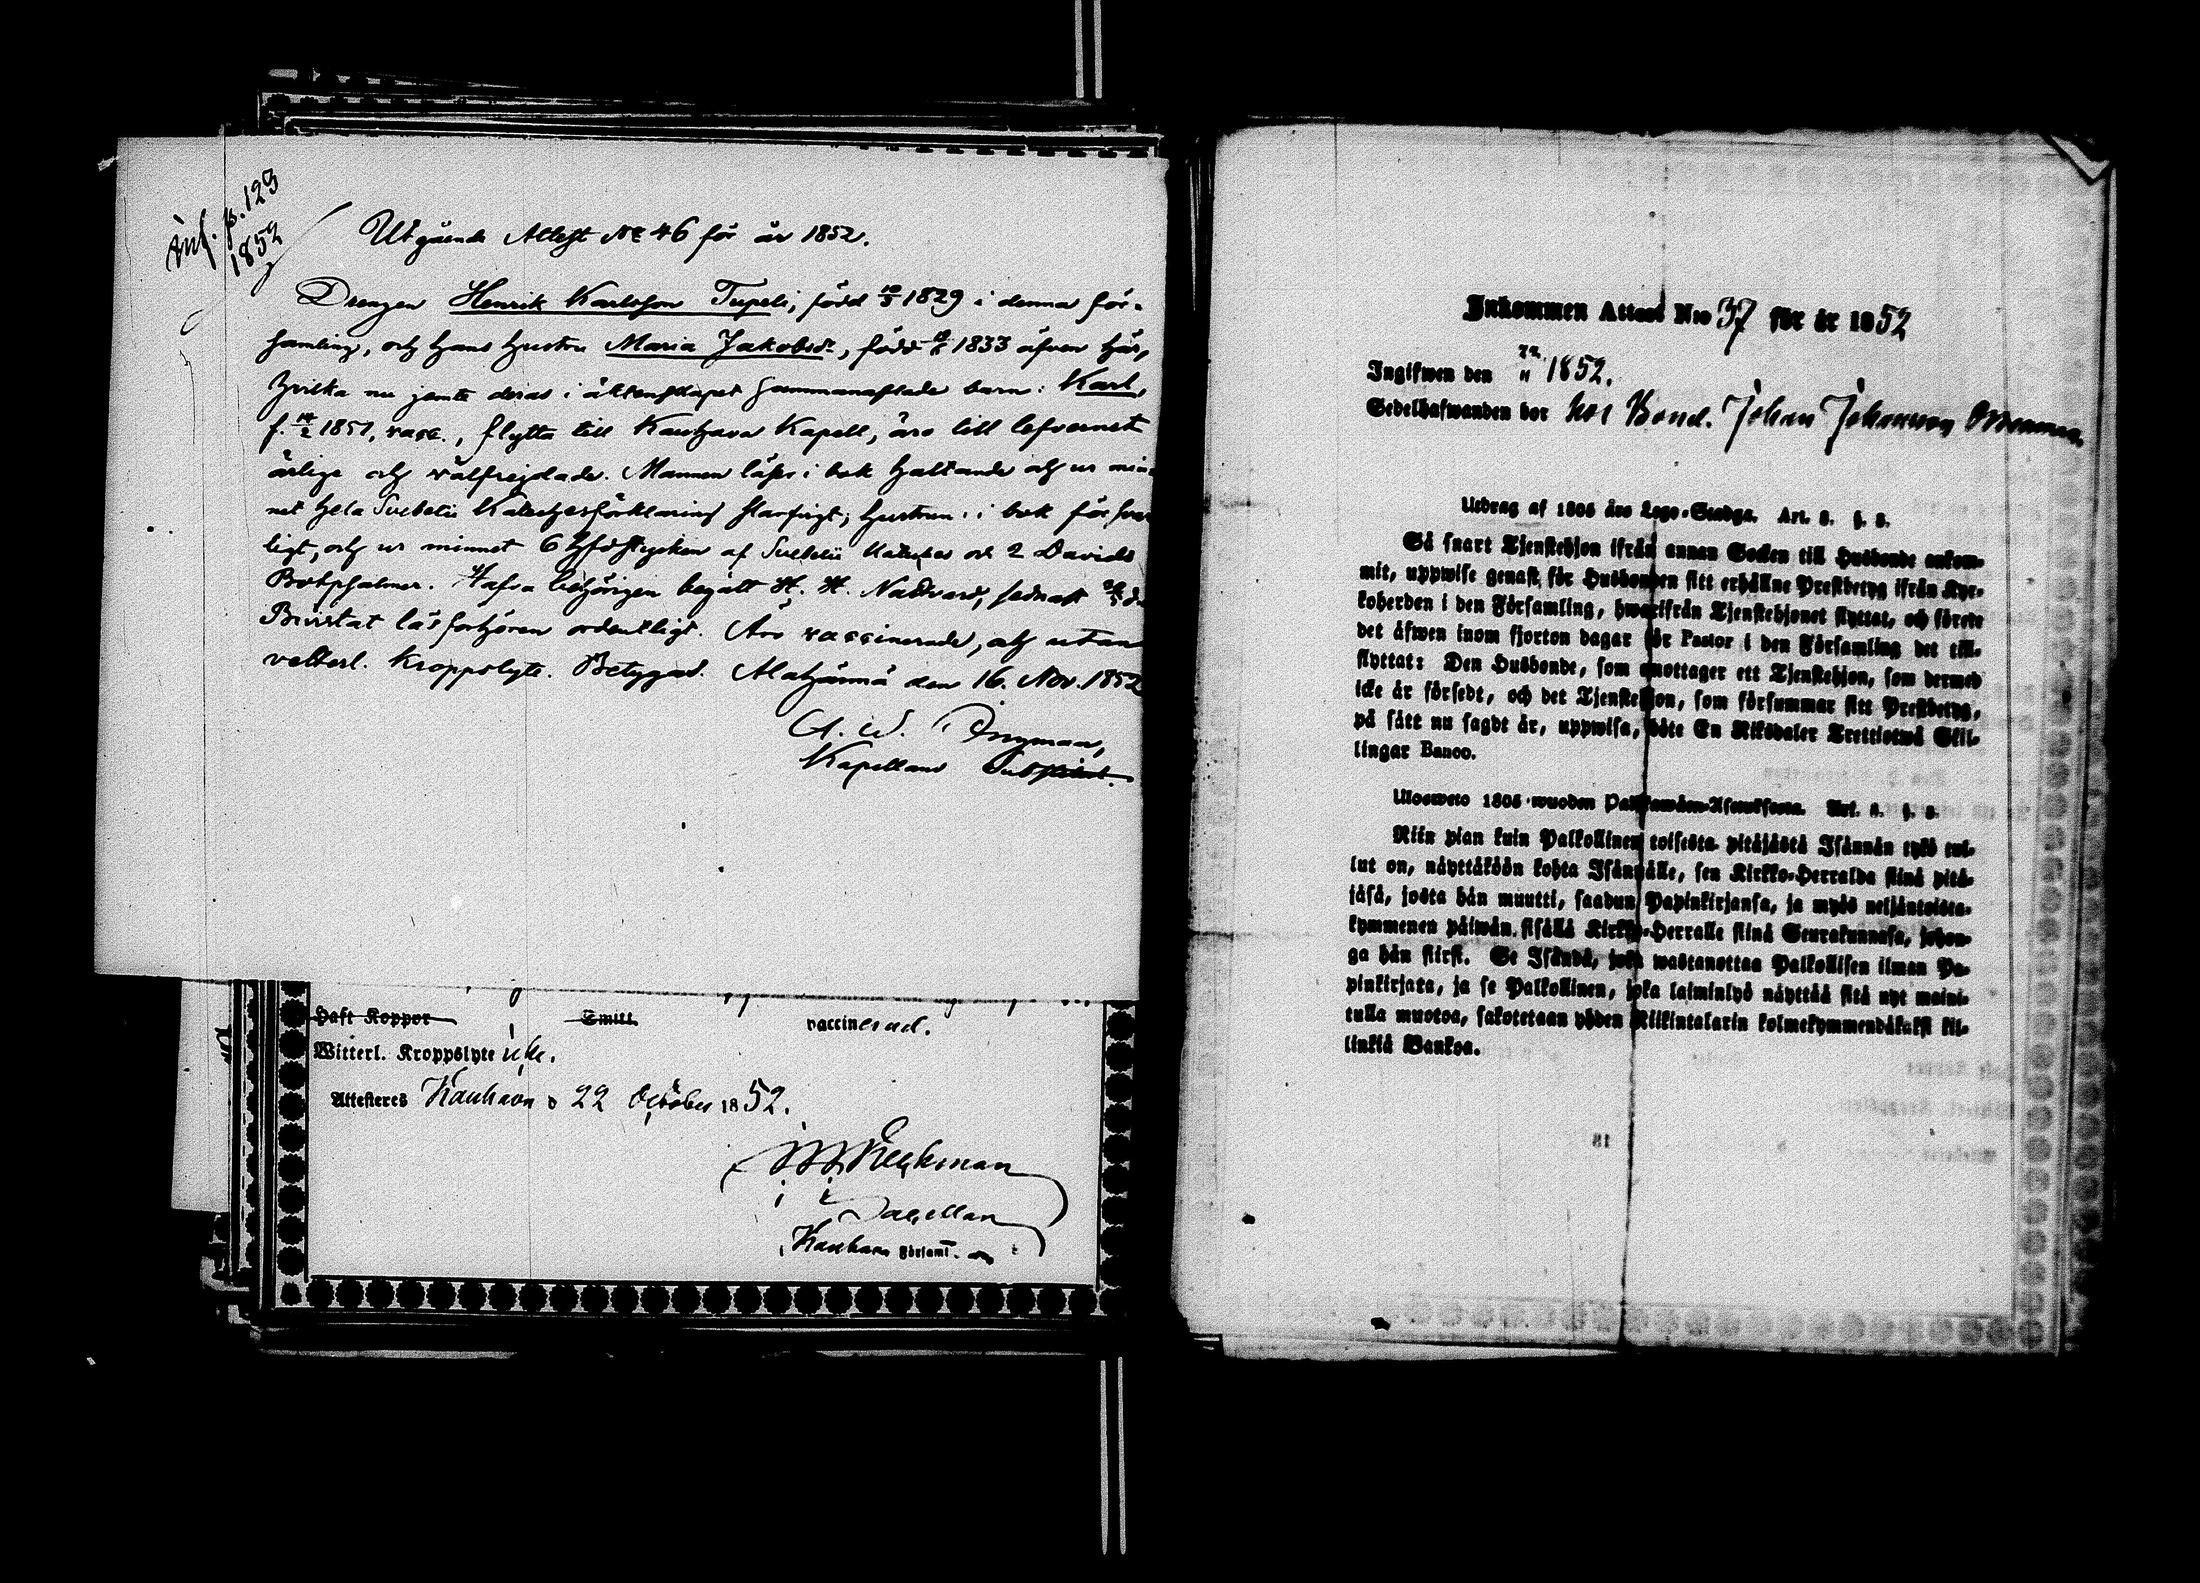 inf. p. 123
1852
Utgående Attest No 46 för år 1852.
Drengen Henrik Karlsson Tupeli, född 10/3 1829 i denna för-
samling, och hans hustru Maria Jakobsdr, född 1833 äfven här,
hvilka nu jemte deras i äktenskapet sammanaflade barn: Karl,
f. 14/2 1851, vacc., flytta till Kauhava Kapell, äro till lefvernet
ärlige och wälfrejdade. Mannen läser i bok hållande och ur min-
net hela Svebelii Katechesförklaring försvarligt; hustrun i bok försvar
ligt, och ur minnet 6 hfdstycken af Svebelii Kateches och 2 Davids
Botpsalmer. Hafva behörigen begått H. H. Nattvard, sednast
Bivistat läsförhören ordentligt. Äro vaccinerade, och utan
vetterl. Kroppslyte. Betygad. Alahärmä den 16. Nov. 1852
A. W.
Kapellans Substitut.
Haft Koppor Smitt. vaccinerad.
Witterl. Kroppslyte icke.
Attesteres Kauhava d 22 October 1852.
Capellan
Kauhava Församl.
Inkommen Attest N:ro 37 för år 1852
Ingifwen den 22/11 1852.
Sedelhafwanden bor hos Bond. Johan Johansson
Utdrag af 1805 års Lego-Stadga. Art. 3. §. 8.
Så snart Tjenstehjon ifrån annan Socken till Husbonde ankom-
mit, uppwise genast för Husbonden sitt erhållne Prestbetyg ifrån Kyr-
koherden i den Församling, hwarifrån Tjenstehjonet flyttat, och förete
det äfwen inom fjorton dagar för Pastor i den Församling det till-
flyttat: Den Husbonde, som emottager ett Tjenstehjon, som dermed
icke är försedt, och det Tjenstehjon, som försummar sitt Prestbetyg,
på sätt nu sagdt är, uppwisa, böte En Riksdaler Trettiotwå Skil-
lingar Banco.
Ulosweto 1805 wuoden Palkkawäen-Asetuksesta. Art. 3. §. 8.
Niin pian kuin Palkollinen toisesta pitäjästä Isännän tykö tul-
lut on, näyttäköön kohta Isännälle, sen Kirkko-Herralda siinä pitä-
jäsä, josta hän muutti, saadun Papinkirjansa, ja myös neljäntoista-
kymmenen päiwän sisällä Kirkko-Herralle siinä Seurakunnasa, johon-
ga hän siirsi. Se Isändä, joka wastanottaa Palkollisen ilman Pa-
pinkirjata, ja se Palkollinen, joka laiminlyö näyttää sitä nyt maini-
tulla muotoa, sakotetaan yhden Riikintalarin kolmekymmendäkaksi kil-
linkiä Bankoa.